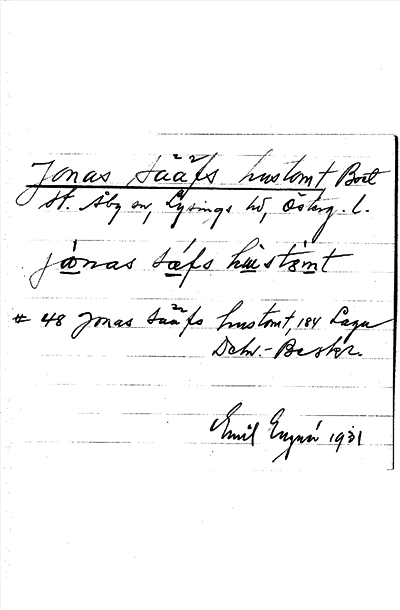 Jonas Sääfs hustomt Bort
St. Åby sn, Lysings hd, Österg. l.
jònas sǽfs hustomt
# 48 Jonas Sääfs hustomt, 184 Laga
Dehn.-Beskr.
Emil 1931